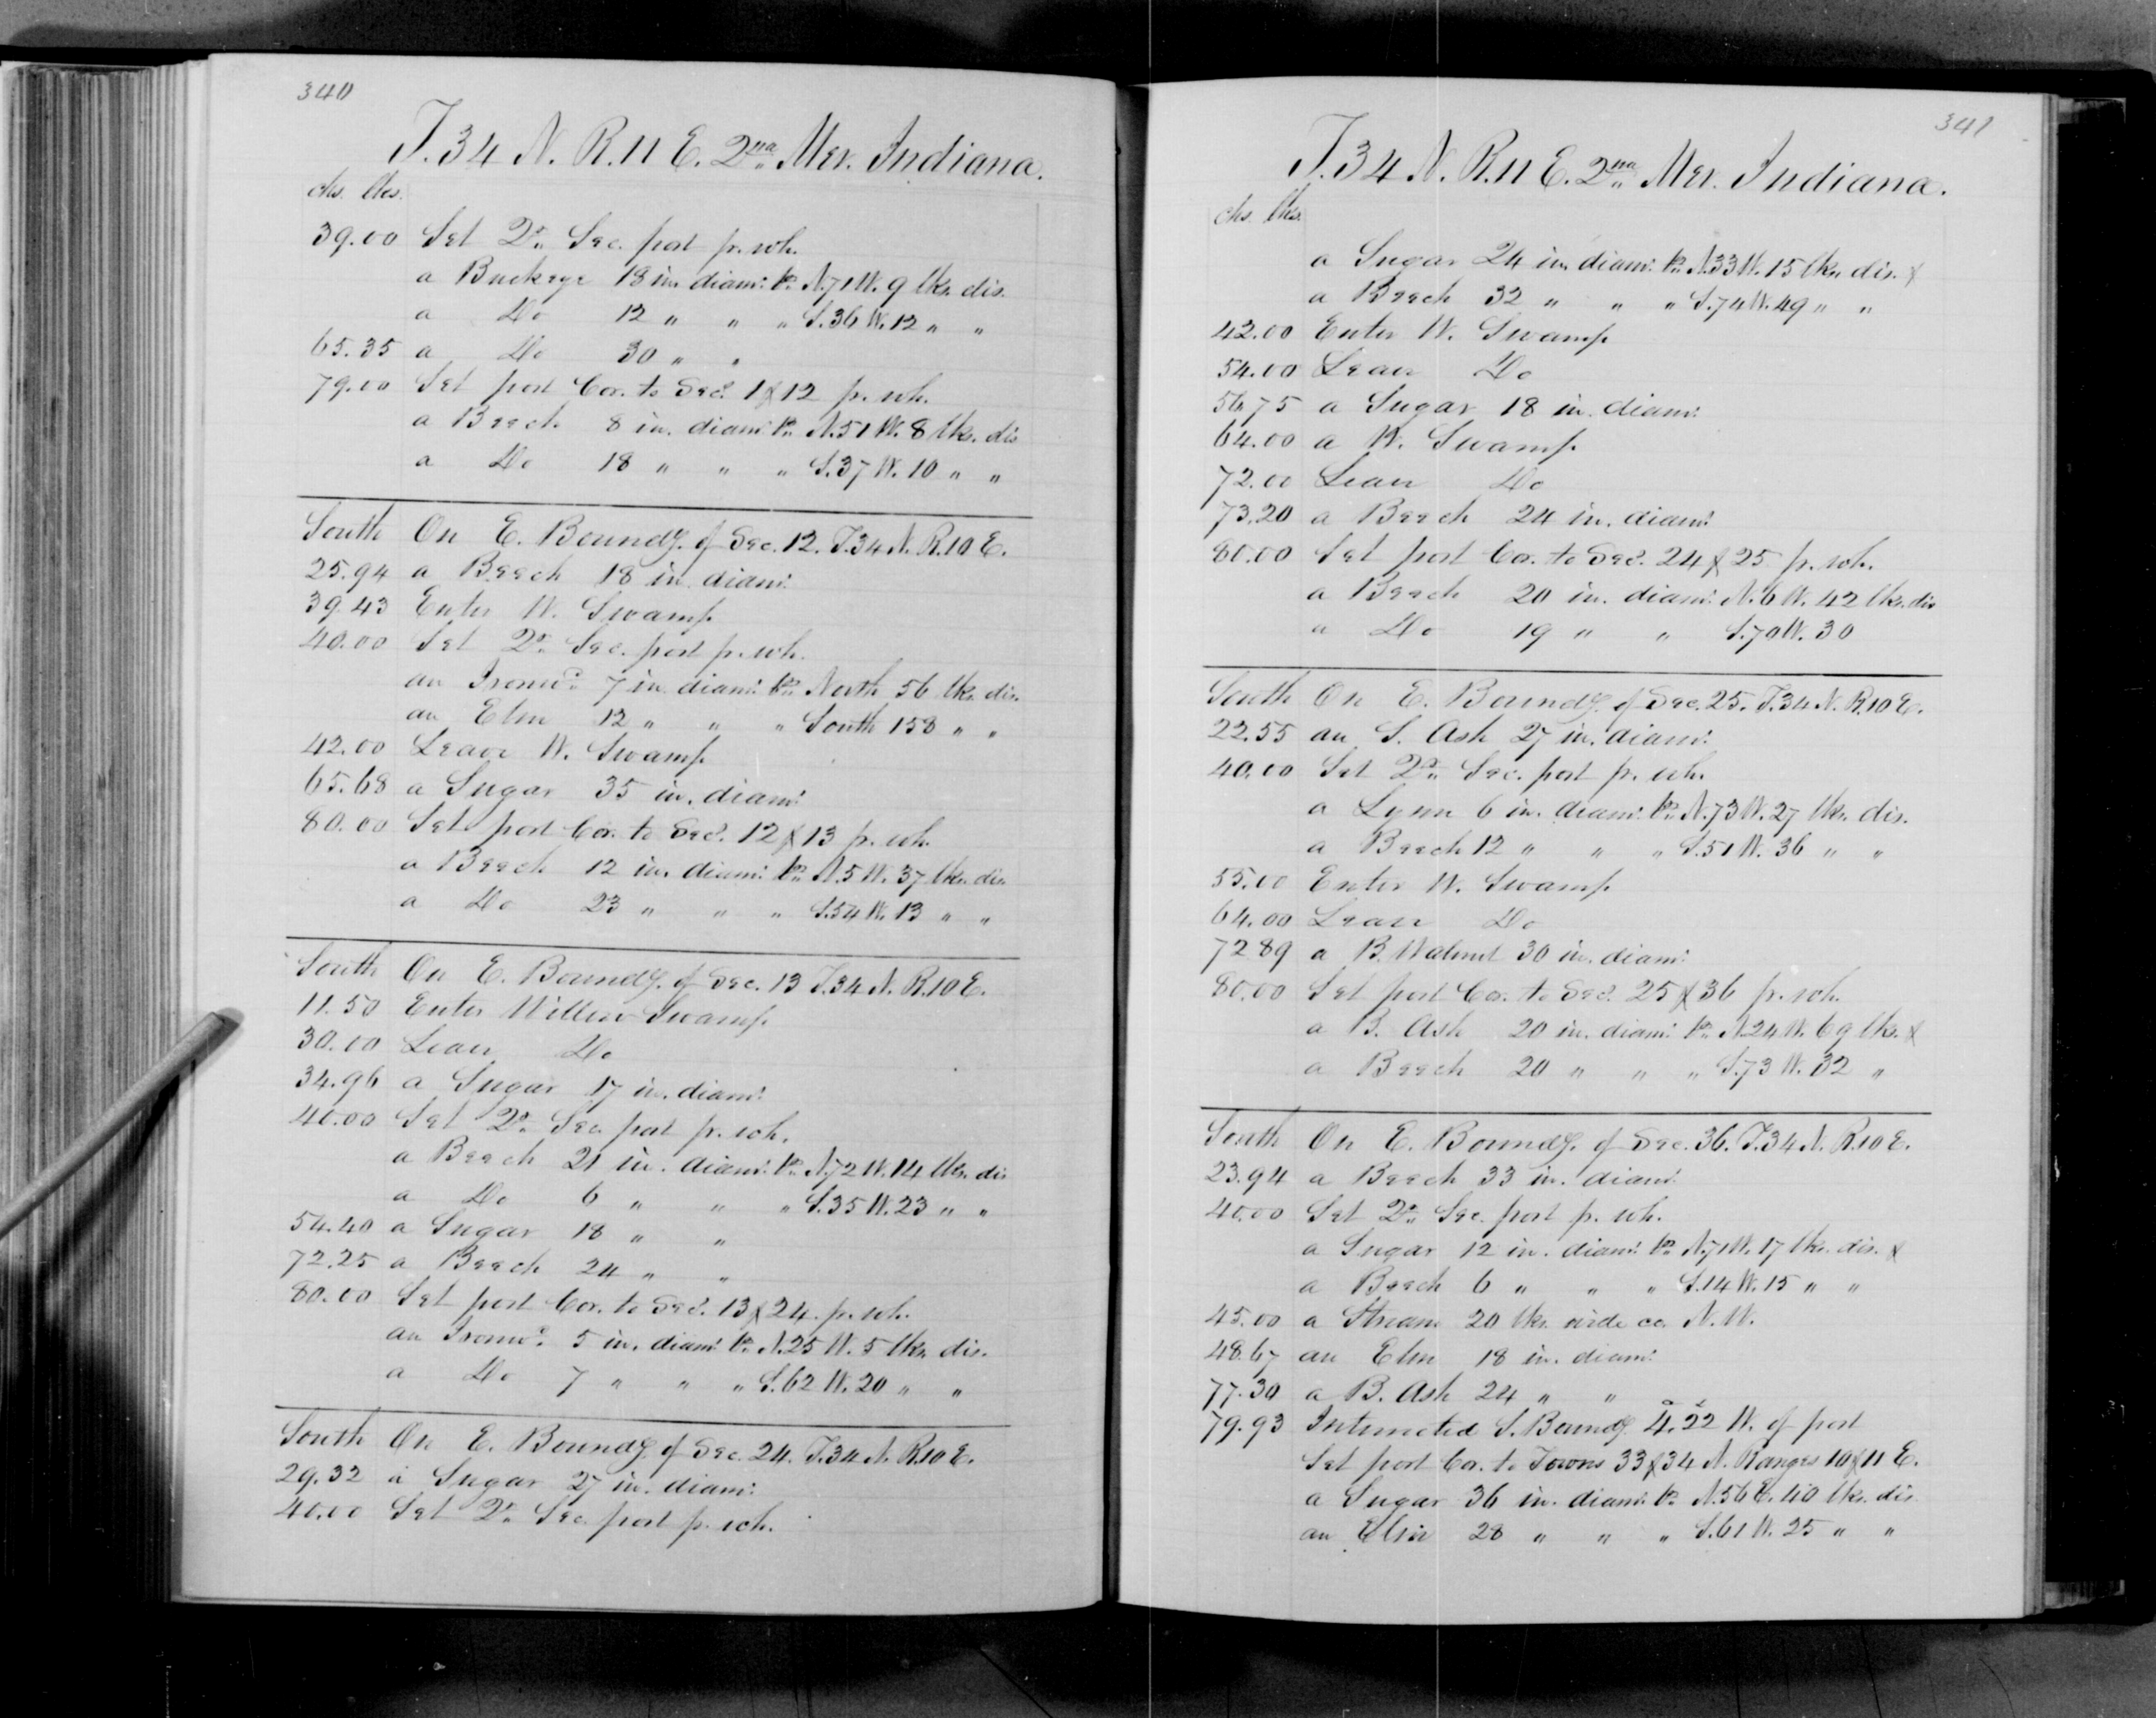 340
T. 34 N. R. 11 E. 2nd Mer. Indiana.
chs. lks.
39.00 Set Qr. Sec. post fr. wh.
a Buckeye 18 in. diam. brs. N. 71 W. 9 lks. dis.
a Do 12 " " " S. 36 W. 12 " "
65.35 a Do 30 " "
79.00 Set post Cor. to Secs. 1 & 12 fr. wh.
a Beech 8 in. diam. brs. N. 51 W. 8 lks. dis
a Do 18 " " " S. 37 W. 10 " "
South On E. Boundy. of Sec. 12. T. 34 N. R. 10 E.
25.94 a Beech 18 in. diam.
39.43 Enter W. Swamp
40.00 Set Qr. Sec. post fr. wh.
an Ironwd. 7 in. diam. brs. North 56 lks. dis.
an Elm 12 " " " South 158 " "
42.00 Leave W. Swamp
65.68 a Sugar 35 in. diam.
80.00 Set post Cor. to Secs. 12 & 13 fr. wh.
a Beech 12 in. diam. brs. N. 5 W. 37 lks. dis.
a Do 23 " " " S. 54 W. 13 " "
South On E. Boundy. of Sec. 13 T. 34 N. R. 10 E.
11.50 Enter Willow Swamp
30.00 Leave Do
34.96 a Sugar 17 in. diam.
40.00 Set Qr. Sec. post fr. wh.
a Beech 21 in. diam. brs. N. 72 W. 14 lks. dis
a Do 6 " " " S. 35 W. 23 " "
54.40 a Sugar 18 " "
72.25 a Beech 24 " "
80.00 Set post Cor. to Secs. 13 & 24. fr. wh.
an Ironwd. 5 in. diam. br. N. 25 W. 5 lks. dis.
a Do 7 " " " S. 62 W. 20 " "
South On E. Boundy. of Sec. 24. T. 34 N. R. 10 E.
29.32 a Sugar 27 in. diam.
40.00 Set Qr. Sec. post fr. wh.
341
T. 34 N. R. 11 E. 2nd Mer. Indiana.
chs. lks.
a Sugar 24 in. diam. brs. N. 33 W. 15 lks. dis. &
a Beech 32 " " " S. 74 W. 49 " "
42.00 Enter W. Swamp
54.00 Leave Do
56.75 a Sugar 18 in. diam.
64.00 a W. Swamp.
72.00 Leave Do
73.20 a Beech 24 in. diam.
80.00 Set post Cor. to Secs. 24 & 25 fr. wh.
a Beech 20 in. diam. N. 6 W. 42 lks. dis
a Do 19 " " S. 70 W. 30
South On E. Boundy. of Sec. 25. T. 34 N. R. 10 E.
22.55 an S. Ash 27 in. diam.
40.00 Set Qr. Sec. post fr. wh.
a Lynn 6 in. diam. brs. N. 73 W. 27 lks. dis.
a Beech 12 " " " S. 51 W. 36 " "
55.00 Enter W. Swamp
64.00 Leave Do
72 89 a B. Walnut 30 in. diam.
80.00 Set post Cor. to Secs. 25 & 36 fr. wh.
a B. Ash 20 in. diam. brs. N. 24 W. 69 lks. &
a Beech 20 " " " S. 73 W. 32 "
South On E. Boundy. of Sec. 36. T. 34 N. R. 10 E.
23.94 a Beech 33 in. diam.
40.00 Set Qr. Sec. post fr. wh.
a Sugar 12 in. diam. brs. N. 71 W. 17 lks. dis. &
a Beech 6 " " " S. 14 W. 15 " "
45.00 a Stream 20 lks. wide co. N. W.
48.67 an Elm 18 in. diam.
77.30 a B. Ash 24 " "
79.93 Intersected S. Boundy. 4.22 W. of post
Set post Cor. to Towns 33 & 34 N. Ranges 10 & 11 E.
a Sugar 36 in. diam. br. N. 56 E. 40 lks. dis
an Elm 28 " " " S. 61 W. 25 " "